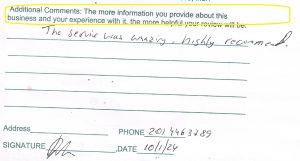 Additional Comments: The more information you provide about this
business and your experience with it, the more helpful your review will be.
The service was amazing, highly recommend.
Address PHONE 201 4463289
SIGNATURE DATE 10/1/24